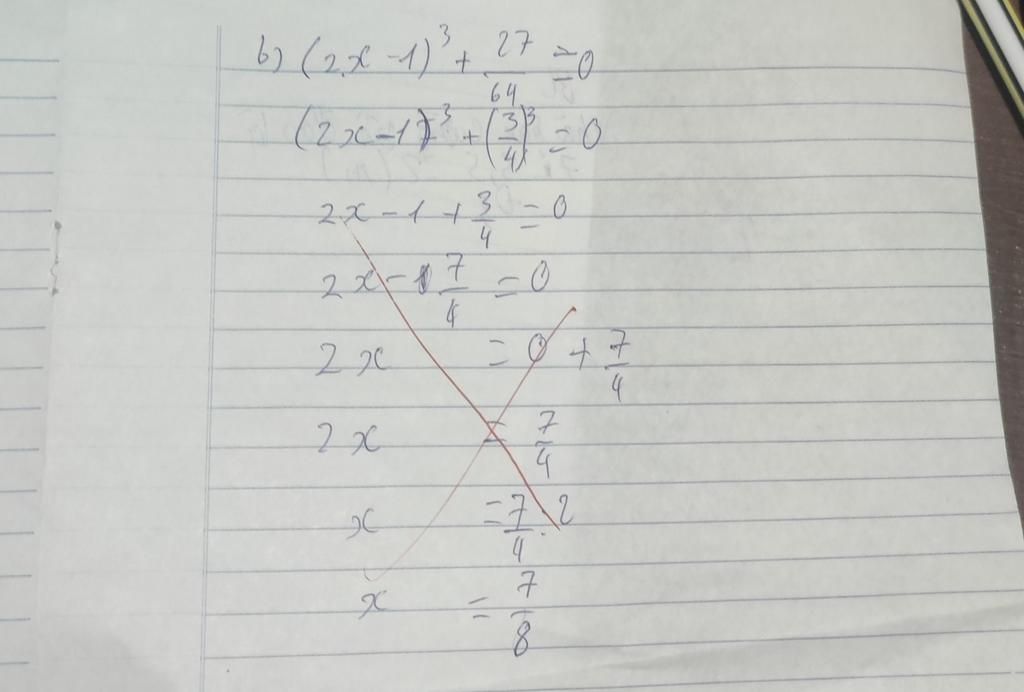 b) (2x - 1)³ + 27/64 = 0
(2x - 1)³ + (3/4)³ = 0
2x - 1 + 3/4 = 0
2x - 7/4 = 0
2x = 0 + 7/4
2x = 7/4
x = 7/4 : 2
x = 7/8